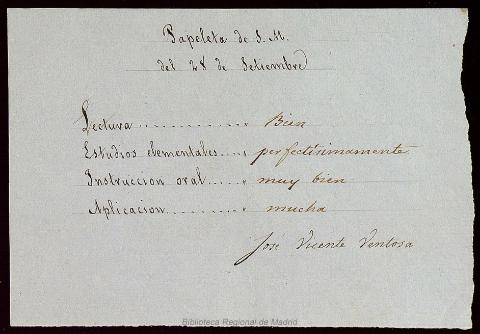 Papeleta de S. M.
del 28 de Setiembre
Lectura .............. " Bien
Estudios elementales...., perfectísimamente
Instruccion oral..... " muy bien
Aplicacion.......... " mucha
José Vicente Ventosa
Biblioteca Regional de Madrid